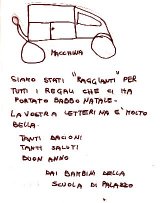 MACCHINA
SIAMO STATI "RAGGIANTI" PER
TUTTI I REGALI CHE CI HA
PORTATO BABBO NATALE.
LA VOSTRA LETTERINA E' MOLTO
BELLA.
TANTI BACIONI
TANTI SALUTI
BUON ANNO
DAI BAMBINI DELLA
SCUOLA DI PALAZZO